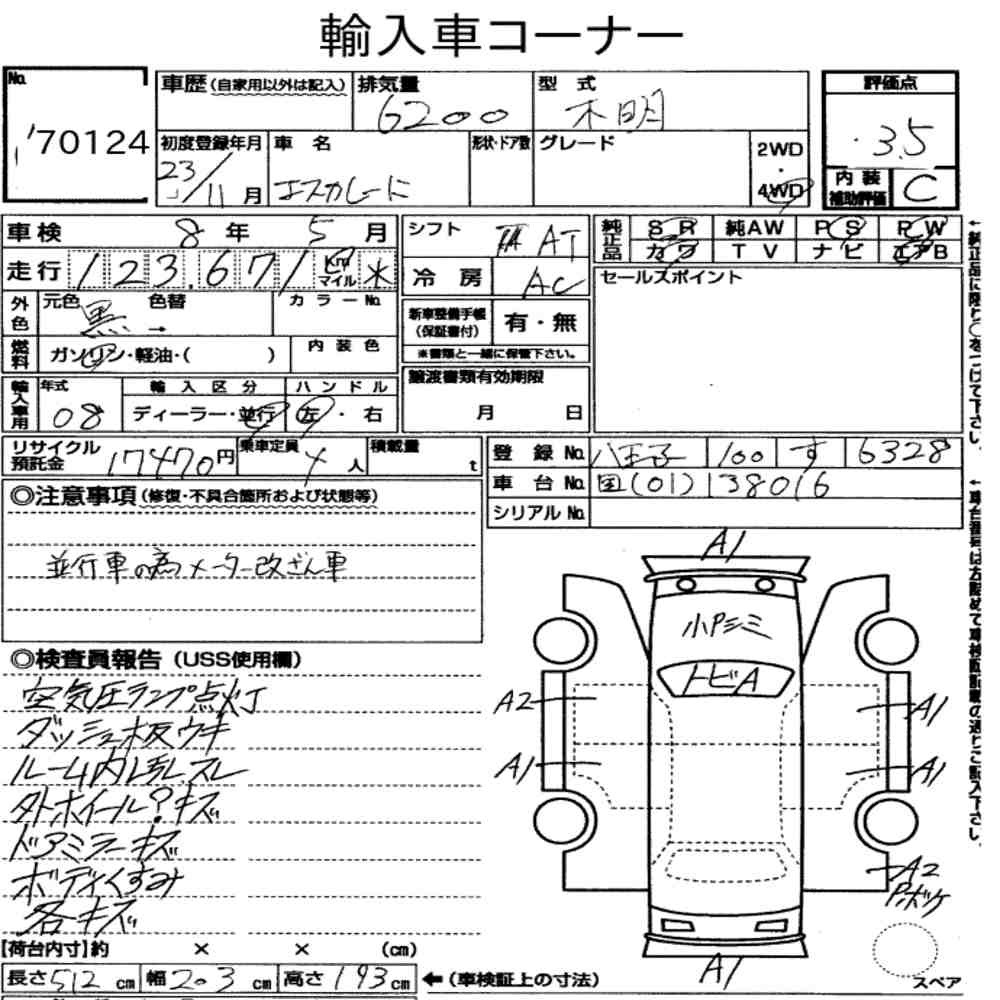 輸入車コーナー
No. 70124
車歴 (自家用以外は記入) 排気量 6200 型式 不明
評価点 3.5
初度登録年月 23/11月 車名 エスカレード 形状・ドア数 グレード 2WD・4WD
内装補助評価 C
車検 8年 5月
走行 123,671 Km マイル
シフト AT
冷房 AC
純正品 SR 純AW PS PW
カワ TV ナビ エアB
セールスポイント
外色 元色 黒 → 色替 カラーNo.
燃料 ガソリン・軽油・( ) 内装色
新車整備手帳(保証書付) 有・無
※書類と一緒に保管下さい。
輸入車用 年式 08 輸入区分 ディーラー・並行 ハンドル 左・右
譲渡書類有効期限 月 日
リサイクル預託金 17470円 乗車定員 4人 積載量 t
登録No. 八王子 100 す 6328
車台No. 国(01)138016
シリアルNo.
◎注意事項(修復・不具合箇所および状態等)
並行車の為メーター改ざん車
◎検査員報告(USS使用欄)
空気圧ランプ点灯
ダッシュ板ウキ
ルーム内ヨゴレ.スレ
外ホイール?キズ
ドアミラーキズ
ボディくすみ
各キズ
A1
小Pシミ
トビA
A2
A1
A1
A1
A2
Pボツケ
A1
スペア
【荷台内寸】約 × × (cm)
長さ 512 cm 幅 203 cm 高さ 193 cm ←(車検証上の寸法)
←純正品に限り○をつけて下さい。
←車台番号は左詰めで車検証記載の通りご記入下さい。